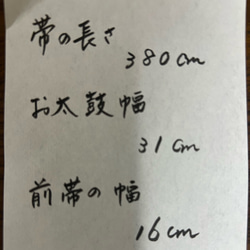 帯の長さ
380cm
お太鼓幅
31cm
前帯の幅
16cm